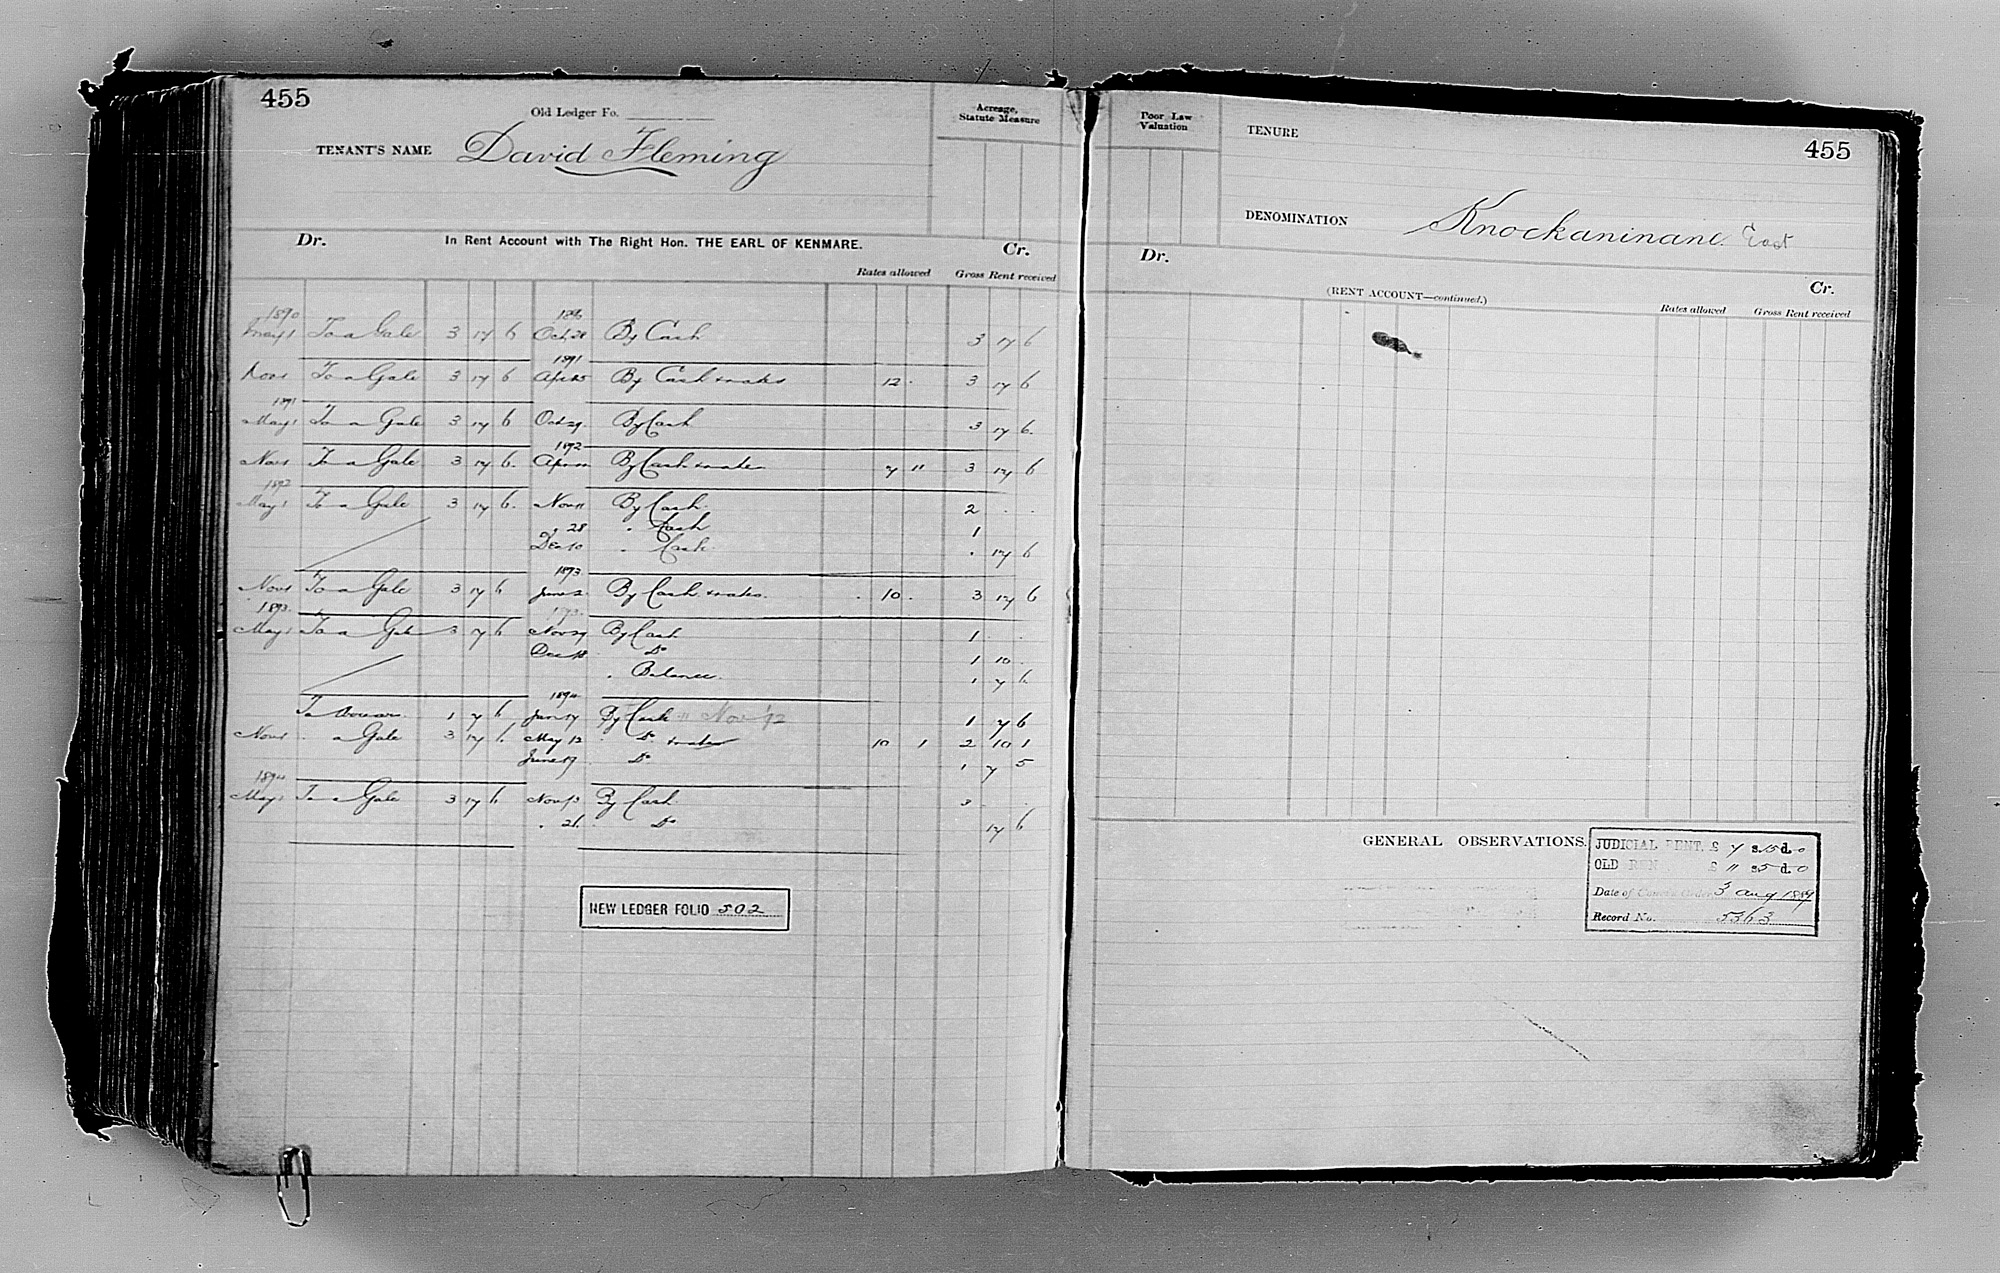 455
Old Ledger Fo.
Acreage,
Statute Measure
TENANT'S NAME David Fleming
Dr. In Rent Account with The Right Hon. THE EARL OF KENMARE. Cr.
Rates allowed Gross Rent received
1890
May 1 To a Gale 3 17 6 Oct 28 By Cash 3 17 6
1891
Nov 1 To a Gale 3 17 6 Apr 25 By Cash & rates 12 . 3 17 6
1891
May 1 To a Gale 3 17 6 Oct 29 By Cash 3 17 6
1892
Nov 1 To a Gale 3 17 6 Apr By Cash & rates 7 11 3 17 6
1892
May 1 To a Gale 3 17 6 Nov 11 By Cash 2 . .
" 28 " Cash 1
Dec 10 " Cash . 17 6
1893
Nov 1 To a Gale 3 17 6 June 2 By Cash & rates 10 . 3 17 6
1893 1893
May 1 To a Gale 3 17 6 Nov 29 By Cash 1 . .
Dec 18 Do 1 10 .
" Balance 1 7 6
1894
To Arrear 1 7 6 Jan 17 By Cash Nov '92 1 7 6
Nov 1 " a Gale 3 17 6 May 12 " Do & rates 10 1 2 10 1
June 19 Do 1 7 5
1894
May 1 To a Gale 3 17 6 Nov 13 By Cash 3 . .
" 26 " Do 17 6
NEW LEDGER FOLIO 502
Poor Law
Valuation
TENURE
455
DENOMINATION Knockaninane East
Dr. Cr.
(RENT ACCOUNT—continued.)
Rates allowed Gross Rent received
GENERAL OBSERVATIONS.
JUDICIAL RENT, £ 7 s. 15 d. 0
OLD REN £ 11 s. 5 d. 0
Date of Court Order 3 Aug 1889
Record No. 5363